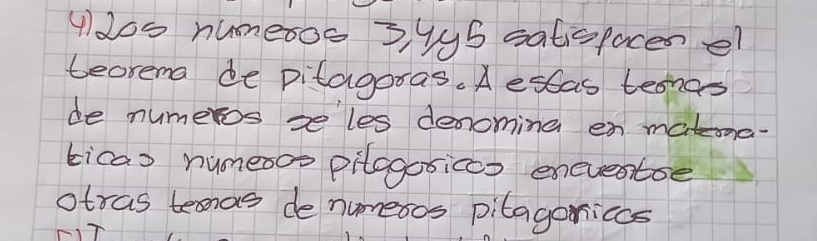 4) Los numeros 3,4 y 5 satisfacen el
teorema de pitagoras. A estas ternas
de numeros se les denomina en matema-
ticas numeros pitagoricos encuentre
otras ternas de numeros pitagoricos